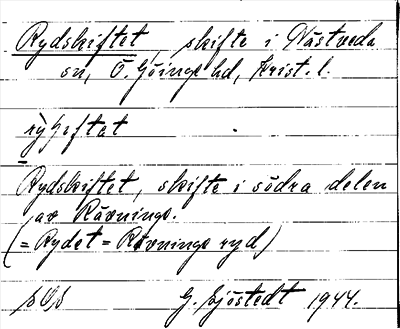 Rydskiftet, skifte i Nästveda
sn, Ö. Göinge hd, Krist. l.
Rydskiftet, skifte i södra delen
av Rävninge.
(= Rydet = Rävninge ryd)
G. Sjöstedt 1944.